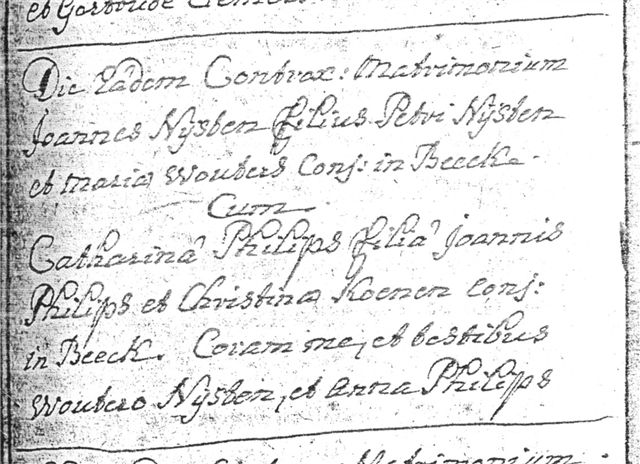 et Gertrude
Die Eadem Contrax: Matrimonium
Joannes Nÿsten filius Petri Nÿsten
et mariæ wouters Conj: in Beeck.
Cum
Catharinâ Philips filiâ Joannis
Philips et Christinæ Koenen Conj:
in Beeck. Coram me, et testibus
woutero Nÿsten, et Anna Philips
Matrimonium